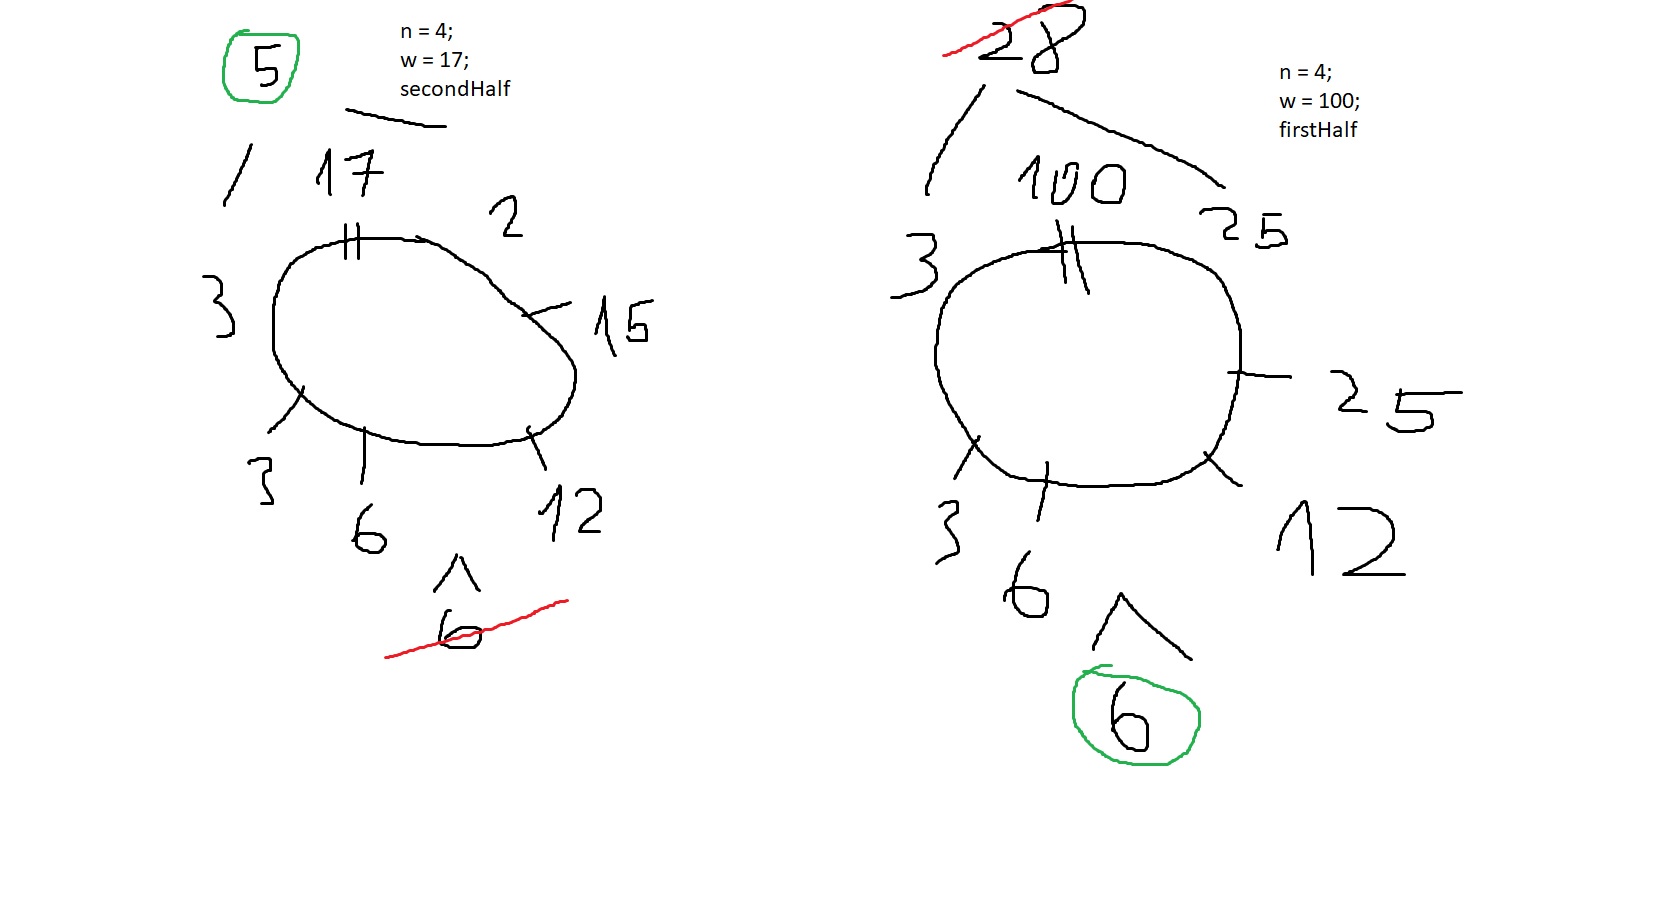 5
n = 4;
w = 17;
secondHalf
17
2
3
15
3
6
12
6
28
n = 4;
w = 100;
firstHalf
100
3
25
25
3
6
12
6